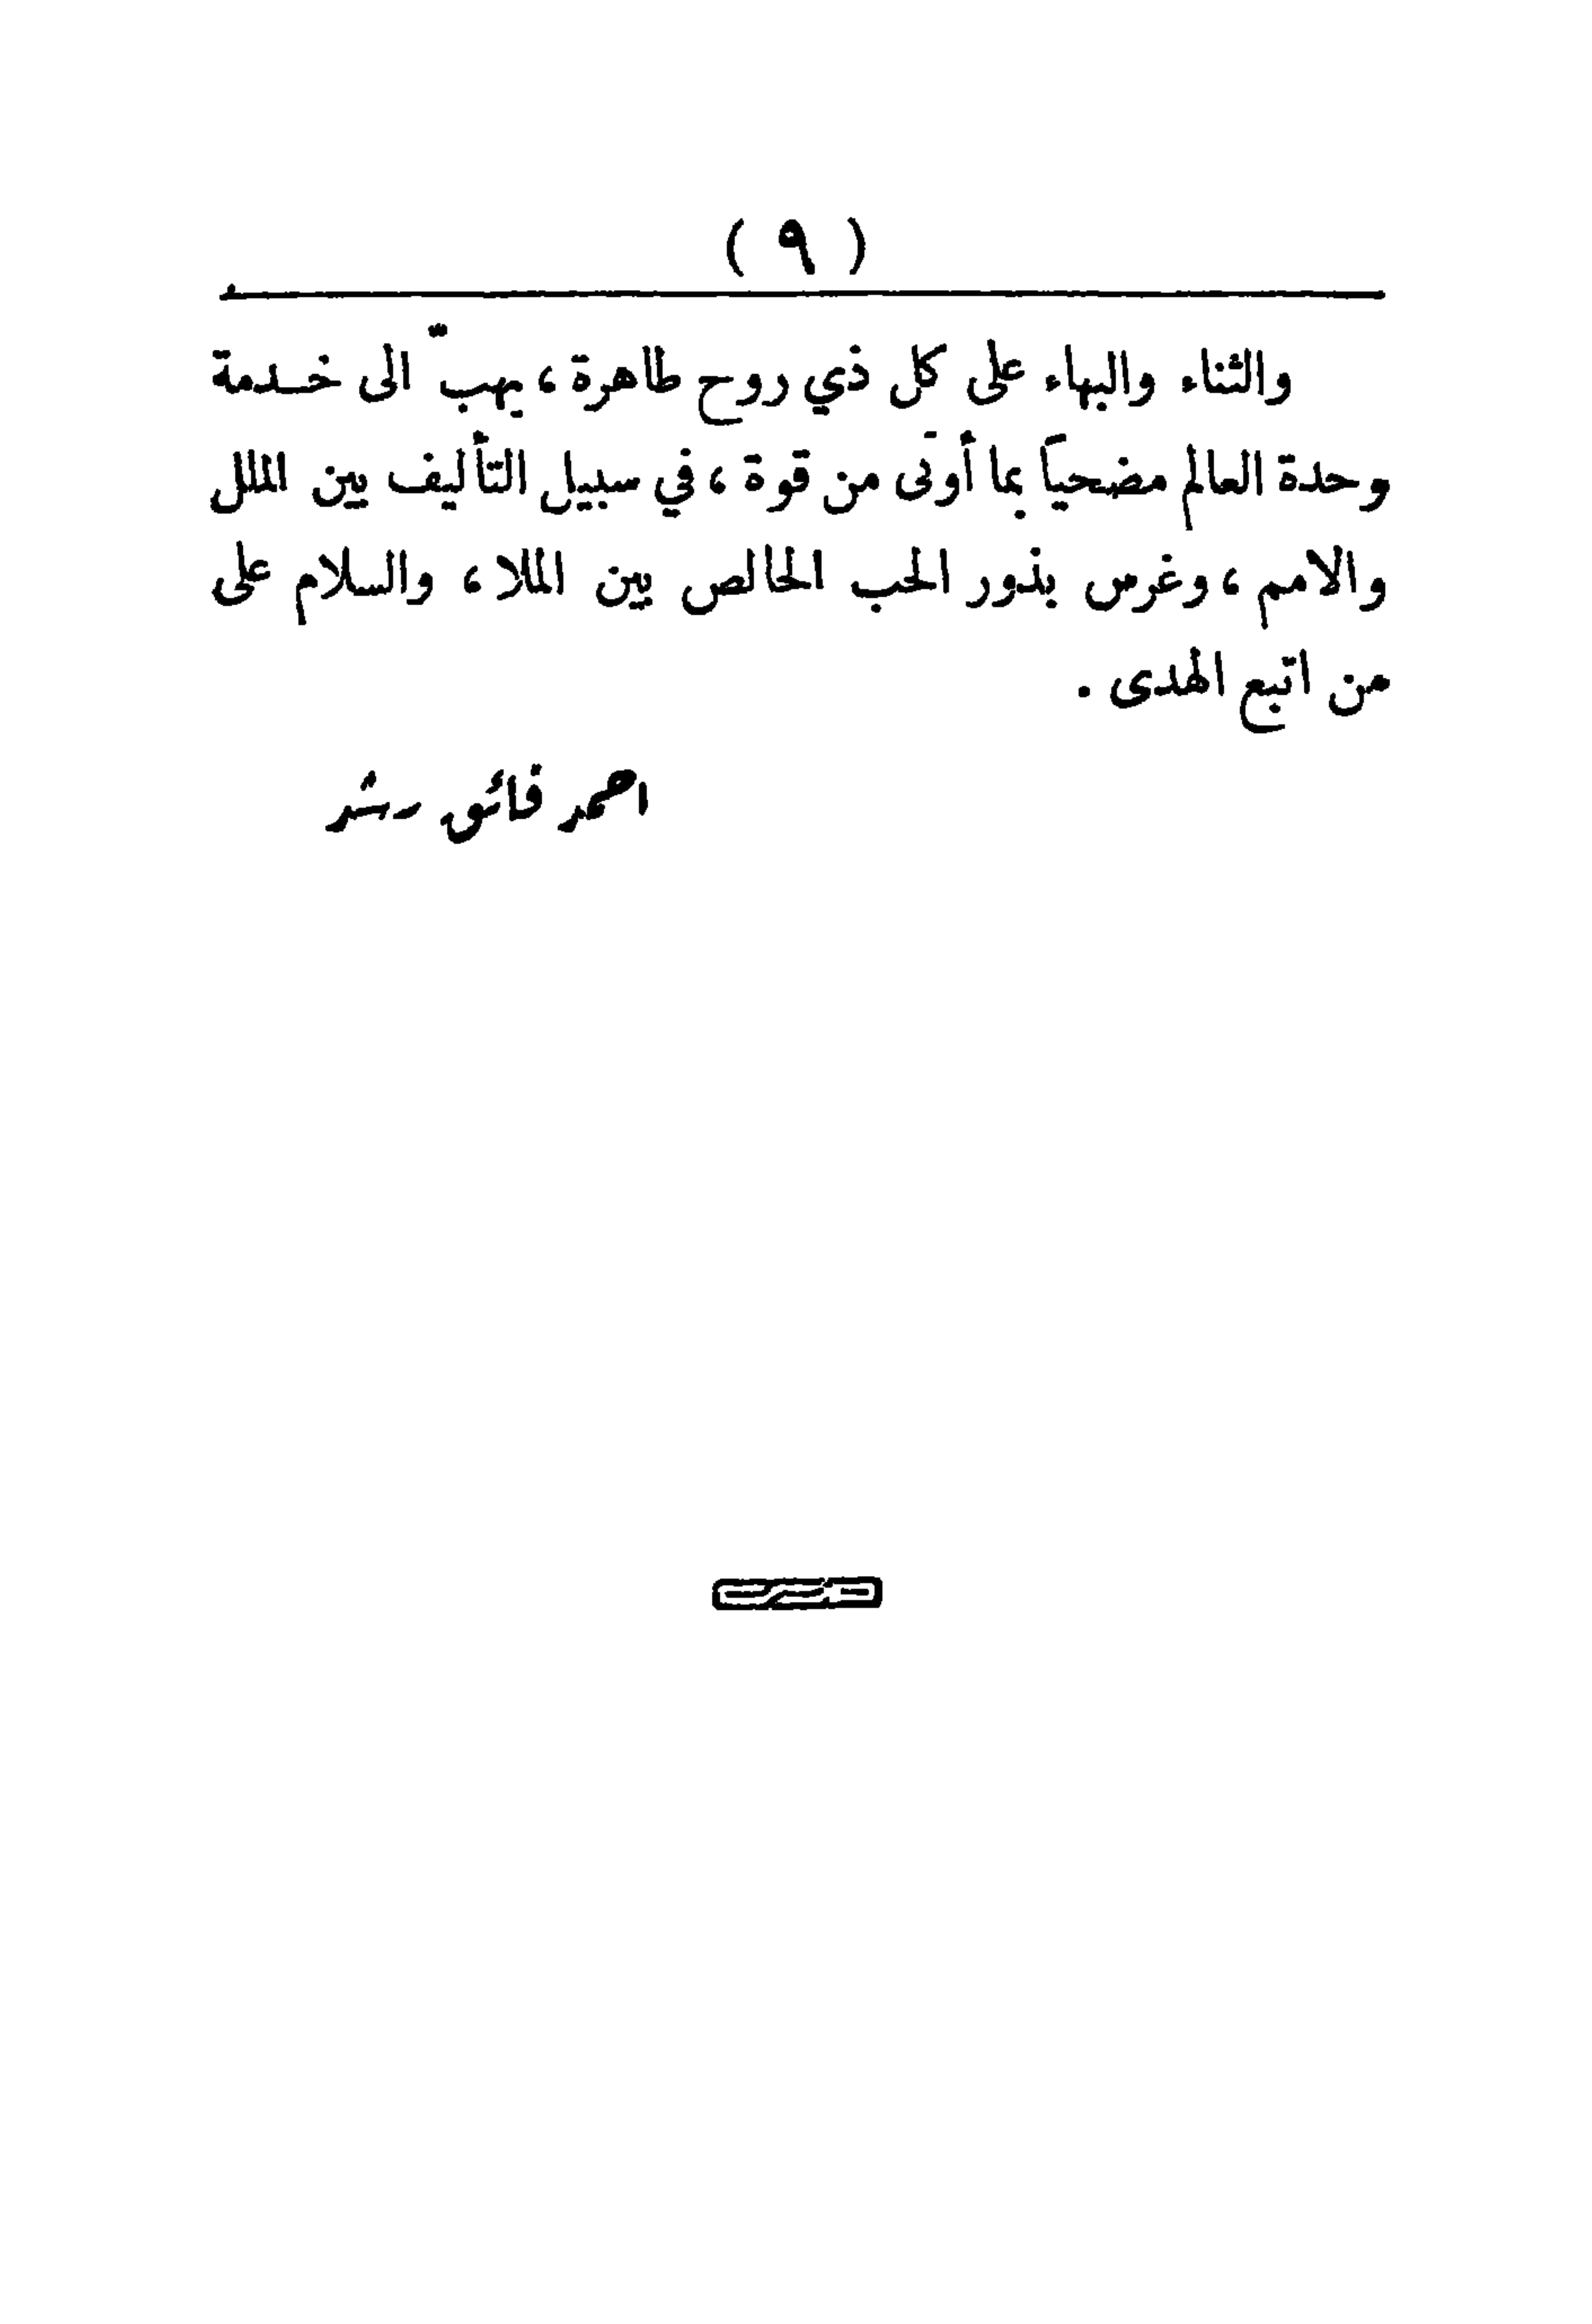 ( ٩ )
والثناء والبهاء على كل ذي روح طاهرة ، يهبّ الى خدمة
وحدة العالم مضحياً بما أوتى من قوة ، في سبيل التأليف بين الملل
والامم ، وغرس بذور الحب الخالص بين الملاء ، والسلام على
من اتبع الهدى .
احمد فائق رشد